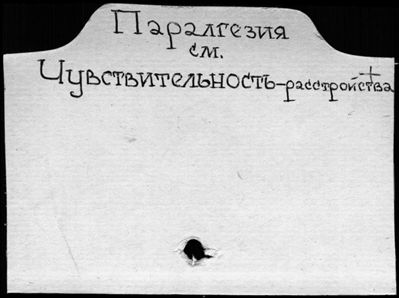 Паралгезия
см.
Чувствительность-расстройства